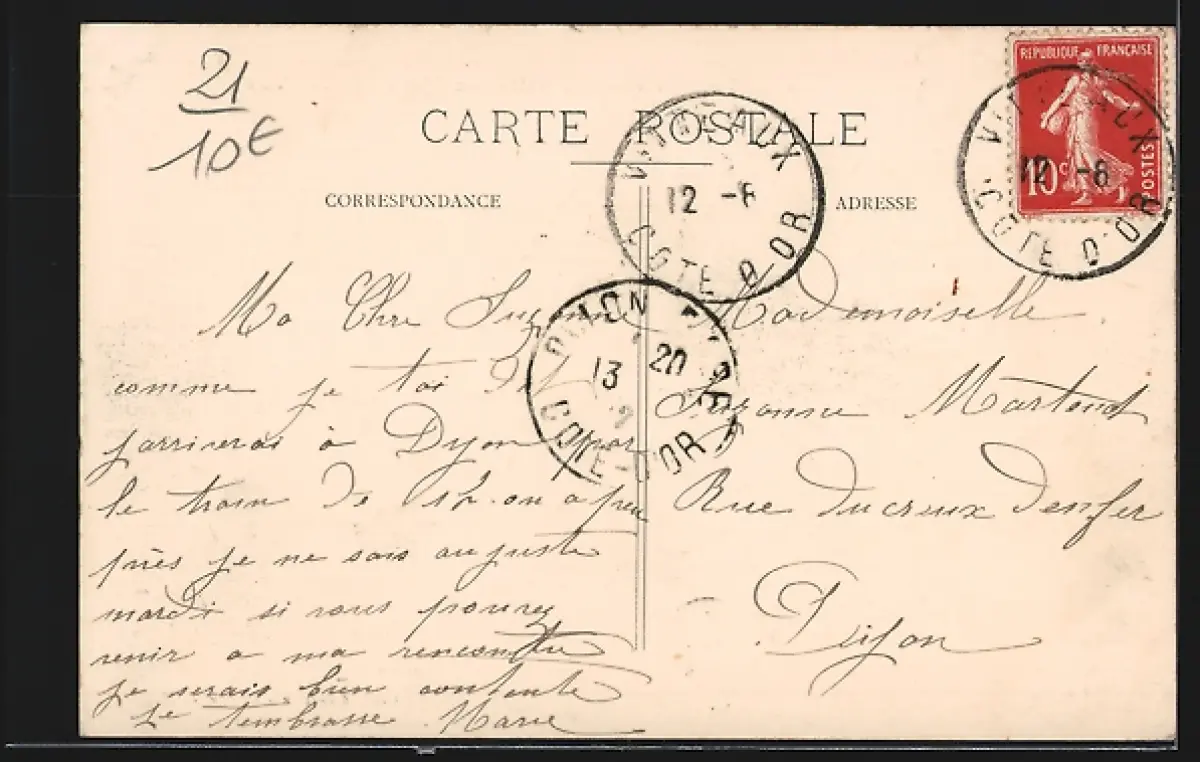 21
10€
CARTE POSTALE
CORRESPONDANCE
ADRESSE
REPUBLIQUE FRANÇAISE
10c
POSTES
VITTEAUX
12 -6
COTE D'OR
VITTEAUX
12 -6
COTE D'OR
DIJON
13 20
COTE-D'OR
Ma Chre Suzanne
comme je tai dit
jarriverai à Dyon par
le train de 12h. ou a peu
près je ne sais au juste
mardi si vous pouvez
venir a ma rencontre
je serais bien contente
Je tembrasse Marie
Mademoiselle
Suzanne
Rue ducreux denfer
Dijon